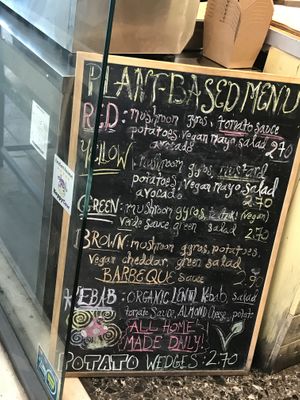 PLANT-BASED MENU
RED: mushroom gyros, tomato sauce
potatoes, vegan mayo, salad
avocado 2.70
YELLOW: mushroom gyros, mustard
potatoes, vegan mayo, salad
avocado 2.70
GREEN: mushroom gyros, (vegan)
Verde sauce, green salad 2.70
BROWN: mushroom gyros, potatoes,
vegan cheddar, green salad
BARBEQUE sauce
KEBAB: ORGANIC LENTIL KEBAB, salad
tomato sauce, ALMOND cheese, potat.
ALL HOME
MADE DAILY!
POTATO WEDGES: 2.70